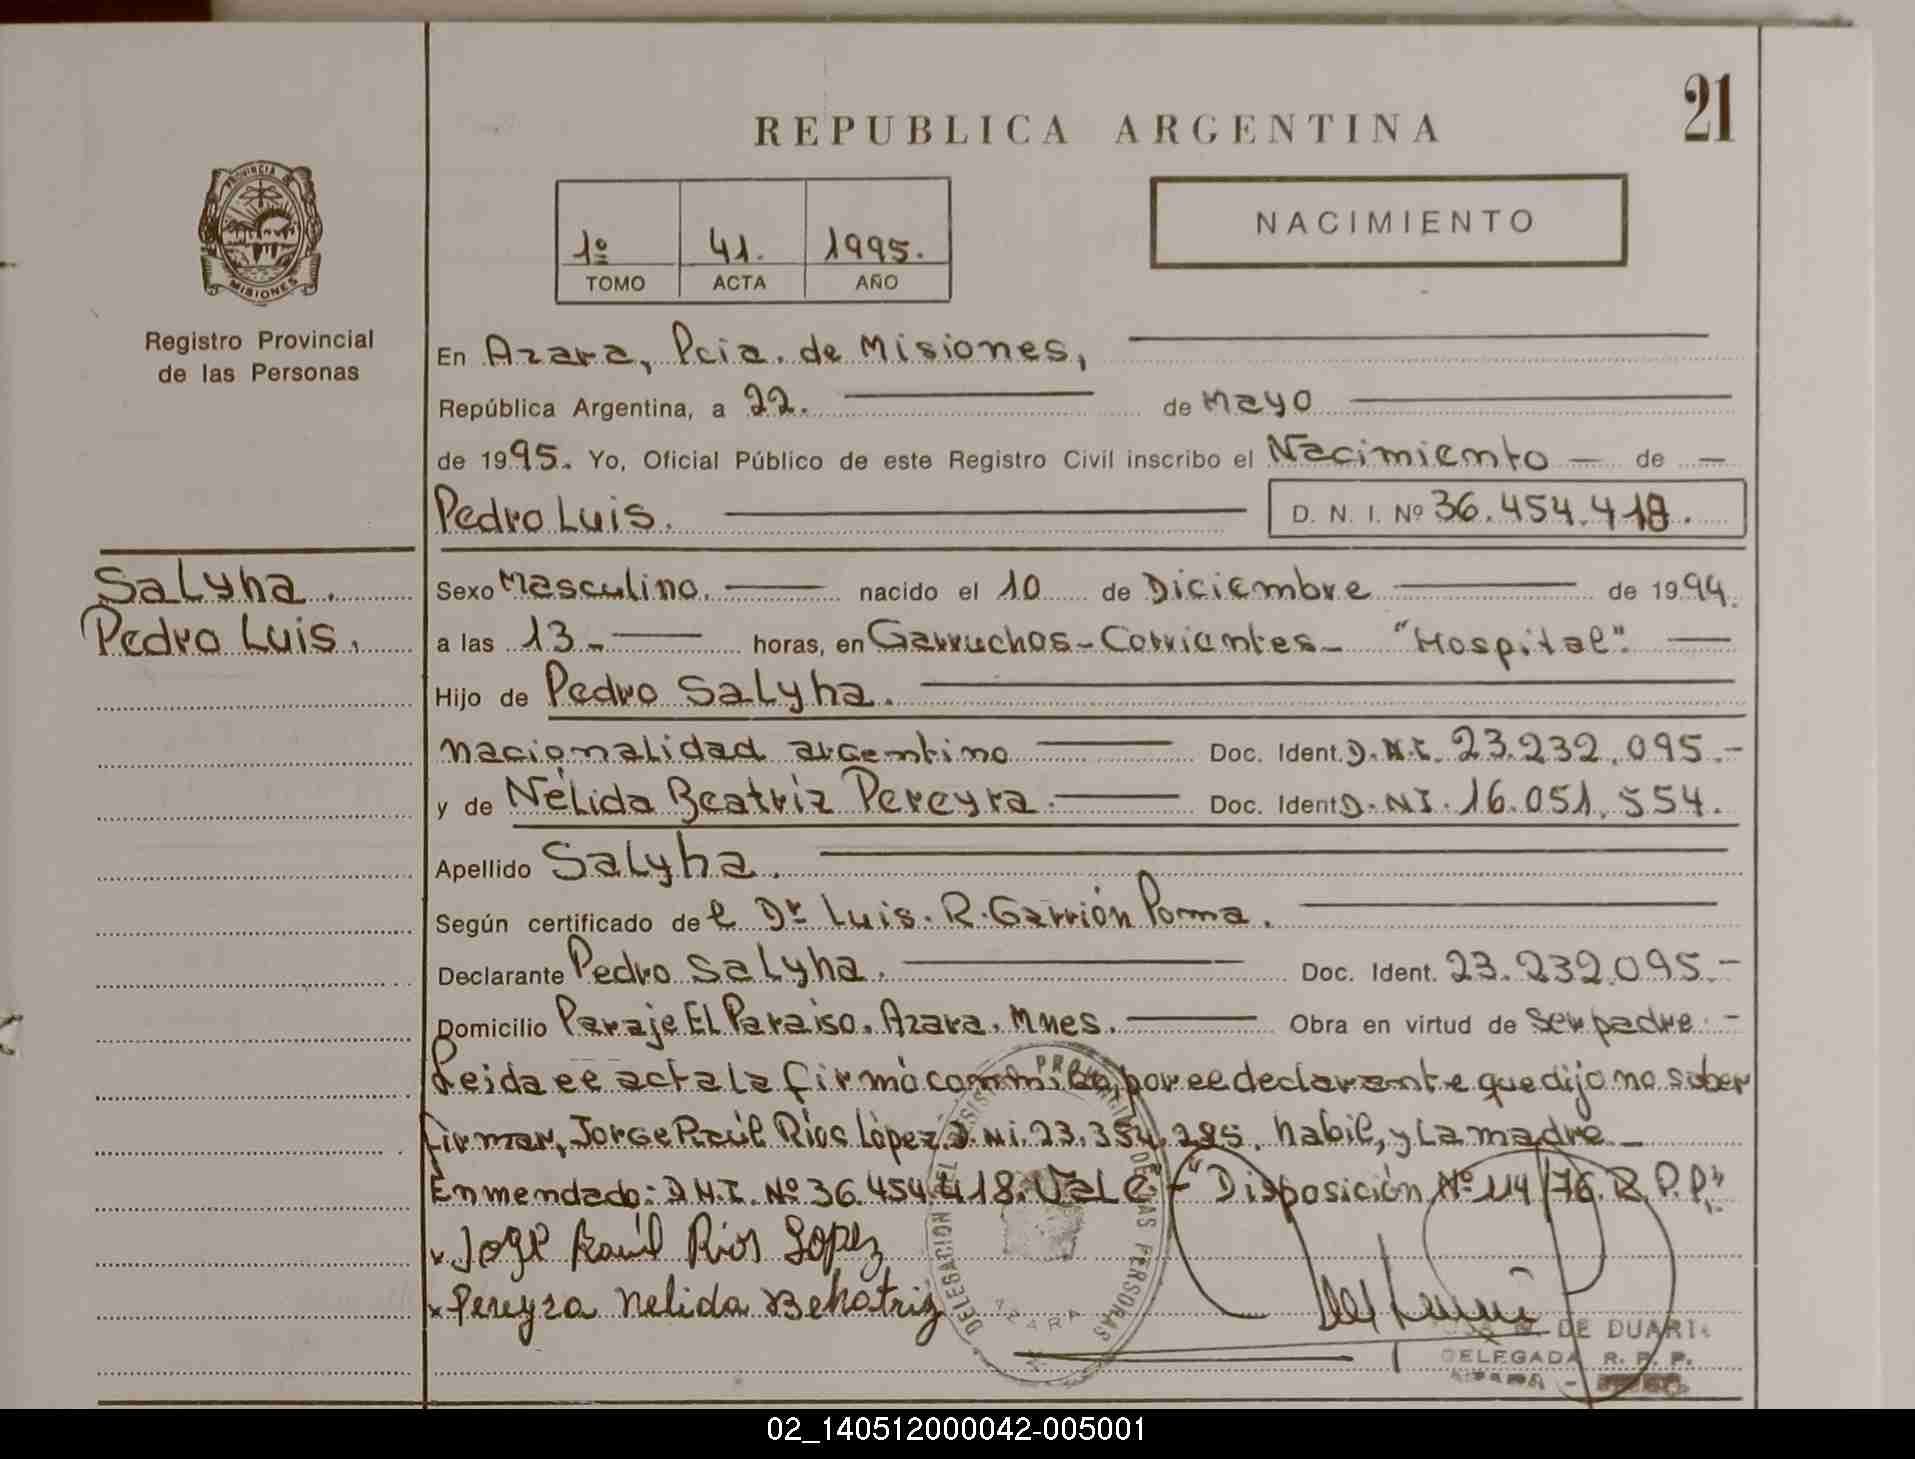 21
REPUBLICA ARGENTINA
PROVINCIA DE
MISIONES
Registro Provincial
de las Personas
1º 41. 1995.
TOMO ACTA AÑO
NACIMIENTO
En Azara, Pcia. de Misiones,
República Argentina, a 22. de Mayo
de 1995. Yo, Oficial Público de este Registro Civil inscribo el Nacimiento — de —
Pedro Luis. D. N. I. Nº 36.454.418.
Salyha.
Pedro Luis.
Sexo Masculino. nacido el 10 de Diciembre de 1994.
a las 13.- horas, en Garruchos-Corrientes- "Hospital".
Hijo de Pedro Salyha.
nacionalidad argentino Doc. Ident. D.N.I. 23.232.095.-
y de Nélida Beatriz Pereyra. Doc. Ident D.NI. 16.051.554.
Apellido Salyha.
Según certificado de l Dr Luis. R. Garrión Poma.
Declarante Pedro Salyha. Doc. Ident. 23.232.095.-
Domicilio Paraje El Paraiso. Azara. Mnes. Obra en virtud de ser padre. -
Leida el acta la firmó conmigo por el declarante que dijo no saber
firmar, Jorge Raúl Ríos López D.Ni. 23.354.295. habil, y la madre -
Enmendado: D.N.I. Nº 36.454.418. Vale - "Disposición Nº 114/76. R.P.P."
x Jorge Raúl Rios Lopez
x Pereyra Nelida Behatriz
DELEGACION DEL PROVINCIAL DE LAS PERSONAS
AZARA
DE DUARTE
DELEGADA R. P. P.
02_140512000042-005001